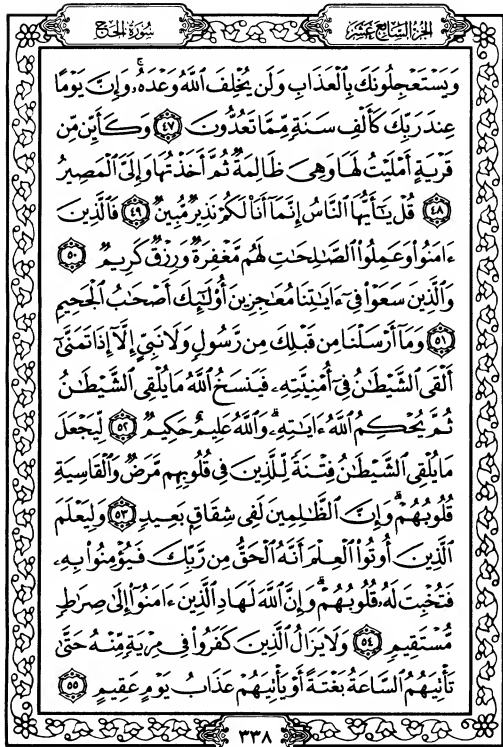 الجزء السابع عشر
سورة الحج
وَيَسْتَعْجِلُونَكَ بِالْعَذَابِ وَلَن يُخْلِفَ اللَّهُ وَعْدَهُۥۚ وَإِنَّ يَوْمًا
عِندَ رَبِّكَ كَأَلْفِ سَنَةٍ مِّمَّا تَعُدُّونَ ٤٧ وَكَأَيِّن مِّن
قَرْيَةٍ أَمْلَيْتُ لَهَا وَهِيَ ظَالِمَةٌ ثُمَّ أَخَذْتُهَا وَإِلَيَّ الْمَصِيرُ
٤٨ قُلْ يَٰٓأَيُّهَا النَّاسُ إِنَّمَآ أَنَا۠ لَكُمْ نَذِيرٌ مُّبِينٌ ٤٩ فَالَّذِينَ
ءَامَنُوا۟ وَعَمِلُوا۟ الصَّٰلِحَٰتِ لَهُم مَّغْفِرَةٌ وَرِزْقٌ كَرِيمٌ ٥٠
وَالَّذِينَ سَعَوْا۟ فِىٓ ءَايَٰتِنَا مُعَٰجِزِينَ أُو۟لَٰٓئِكَ أَصْحَٰبُ الْجَحِيمِ
٥١ وَمَآ أَرْسَلْنَا مِن قَبْلِكَ مِن رَّسُولٍ وَلَا نَبِىٍّ إِلَّآ إِذَا تَمَنَّىٰٓ
أَلْقَى الشَّيْطَٰنُ فِىٓ أُمْنِيَّتِهِۦ فَيَنسَخُ اللَّهُ مَا يُلْقِى الشَّيْطَٰنُ
ثُمَّ يُحْكِمُ اللَّهُ ءَايَٰتِهِۦۗ وَاللَّهُ عَلِيمٌ حَكِيمٌ ٥٢ لِّيَجْعَلَ
مَا يُلْقِى الشَّيْطَٰنُ فِتْنَةً لِّلَّذِينَ فِى قُلُوبِهِم مَّرَضٌ وَالْقَاسِيَةِ
قُلُوبُهُمْۗ وَإِنَّ الظَّٰلِمِينَ لَفِى شِقَاقٍۭ بَعِيدٍ ٥٣ وَلِيَعْلَمَ
الَّذِينَ أُوتُوا۟ الْعِلْمَ أَنَّهُ الْحَقُّ مِن رَّبِّكَ فَيُؤْمِنُوا۟ بِهِۦ
فَتُخْبِتَ لَهُۥ قُلُوبُهُمْۗ وَإِنَّ اللَّهَ لَهَادِ الَّذِينَ ءَامَنُوٓا۟ إِلَىٰ صِرَٰطٍ
مُّسْتَقِيمٍ ٥٤ وَلَا يَزَالُ الَّذِينَ كَفَرُوا۟ فِى مِرْيَةٍ مِّنْهُ حَتَّىٰ
تَأْتِيَهُمُ السَّاعَةُ بَغْتَةً أَوْ يَأْتِيَهُمْ عَذَابُ يَوْمٍ عَقِيمٍ ٥٥
٣٣٨